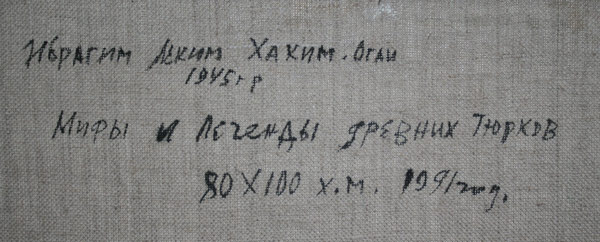 Ибрагим Леким Хаким. Огли
1945г р
Мифы и Легенды древних Тюрков
80X100 х.м. 1991год.